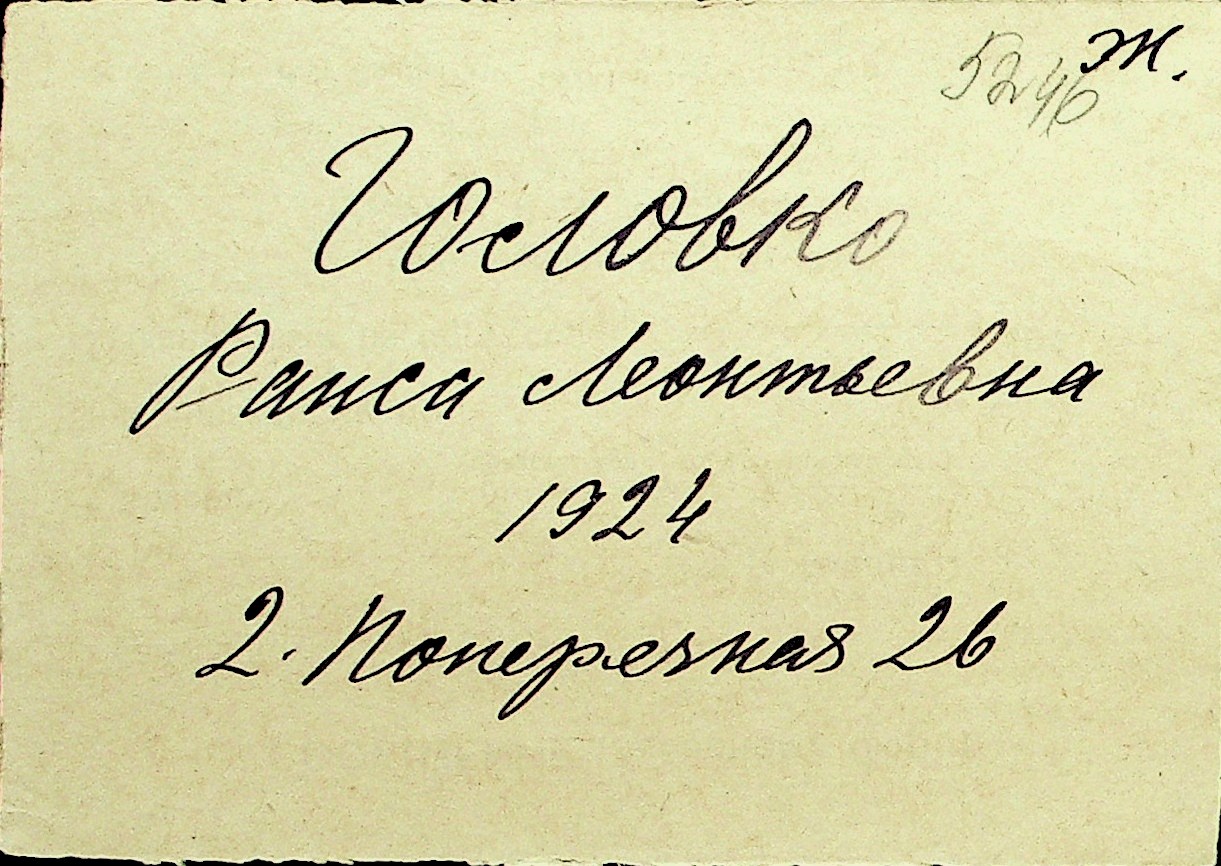 5246 ж.
Головко
Раиса Леонтьевна
1924
2. Поперечная 26